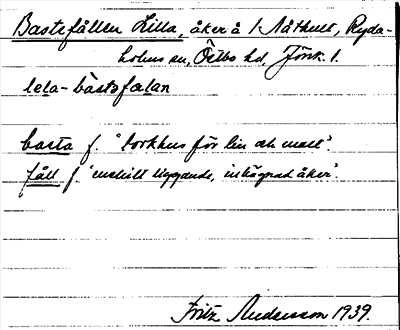 Bastefållen Lilla, åker å 1 Nåthult, Ryda-
holms sn, Östbo hd, Jönk. l.
lela-bàstəfælan
basta f. 'torkhus för lin och malt'.
fåll f. 'enskilt liggande, inhägnad åker'.
Fritz Andersson 1939.